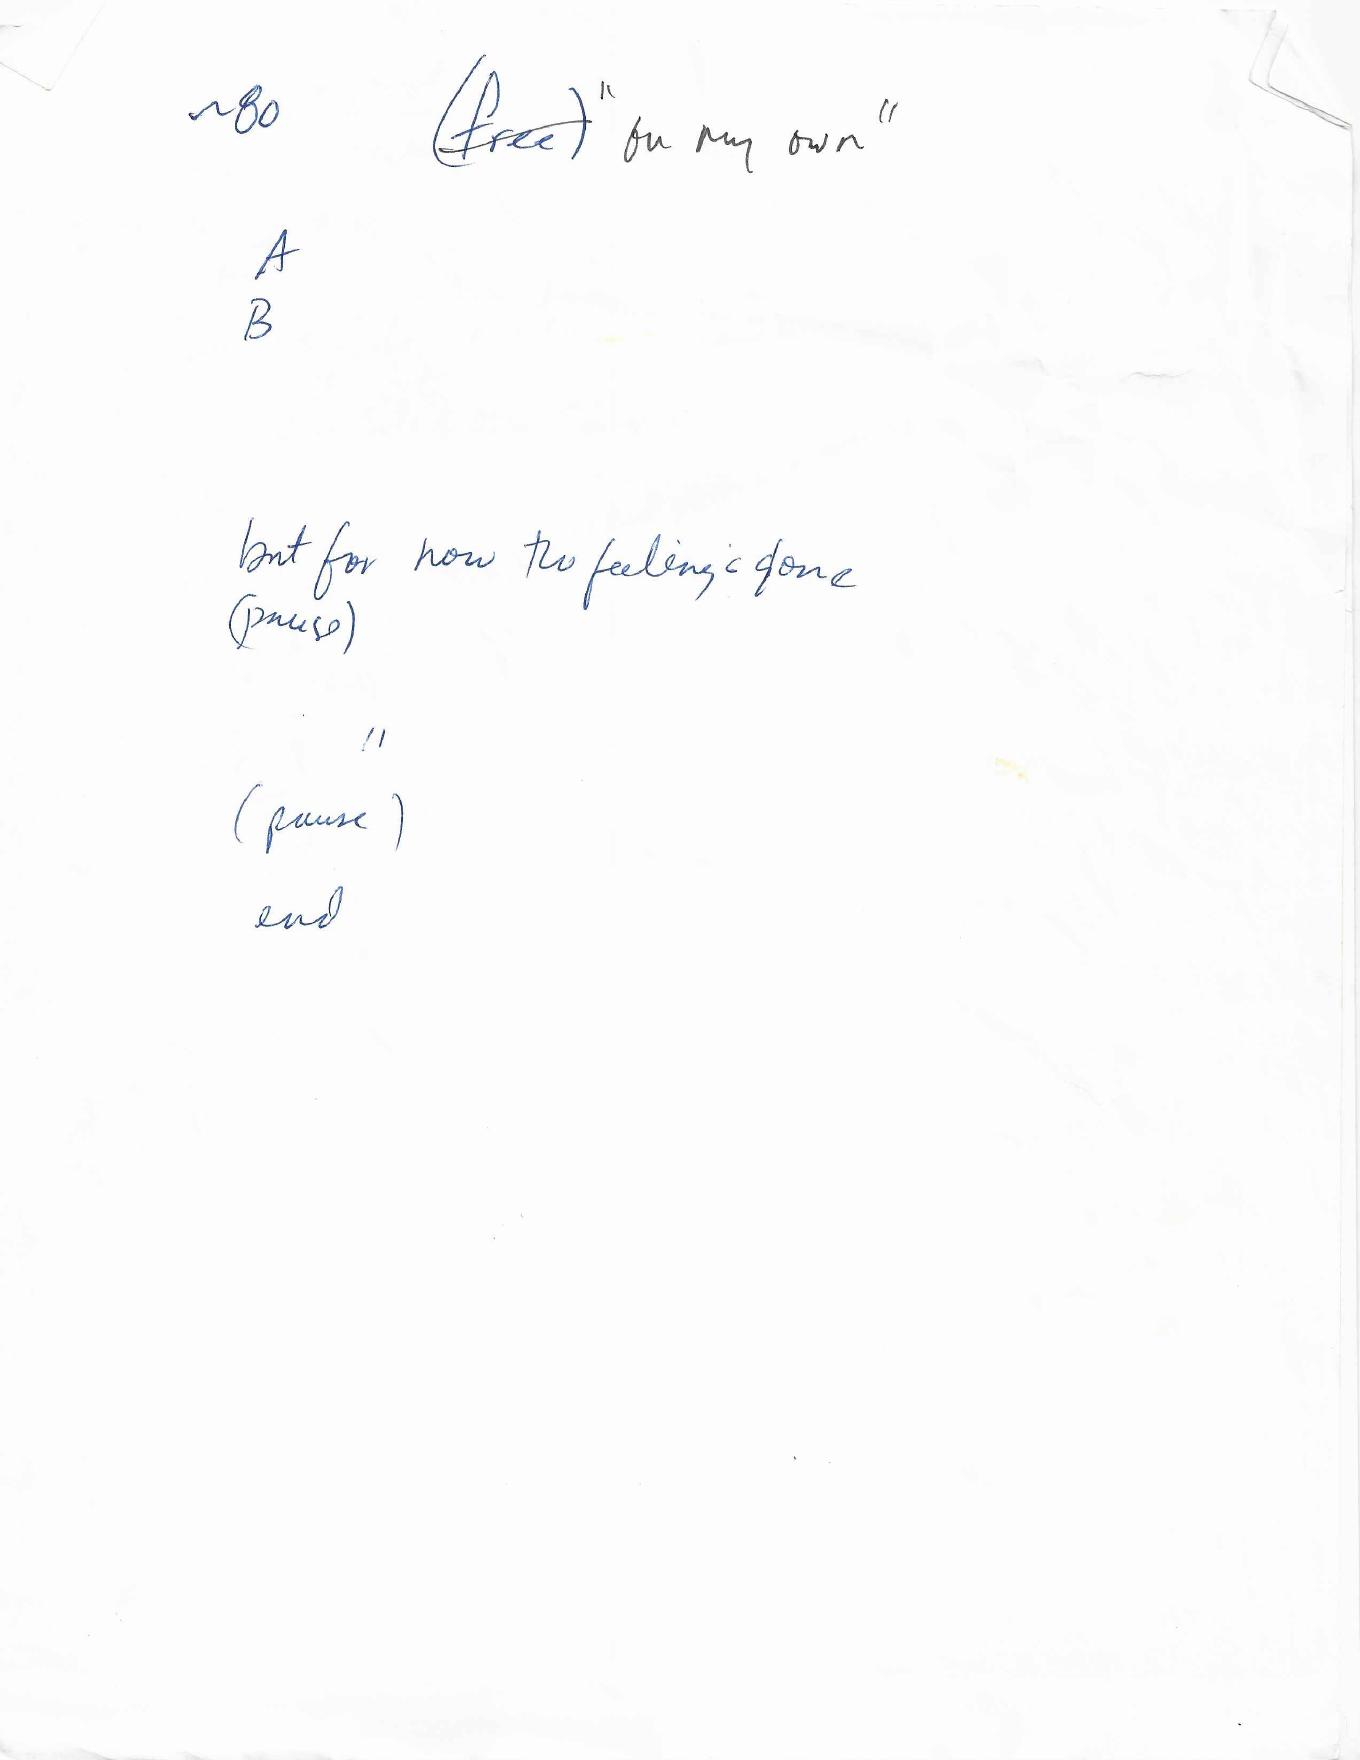 ~80 (free) "on my own"
A
B
but for now the feeling's gone
(pause)
"
(pause)
end